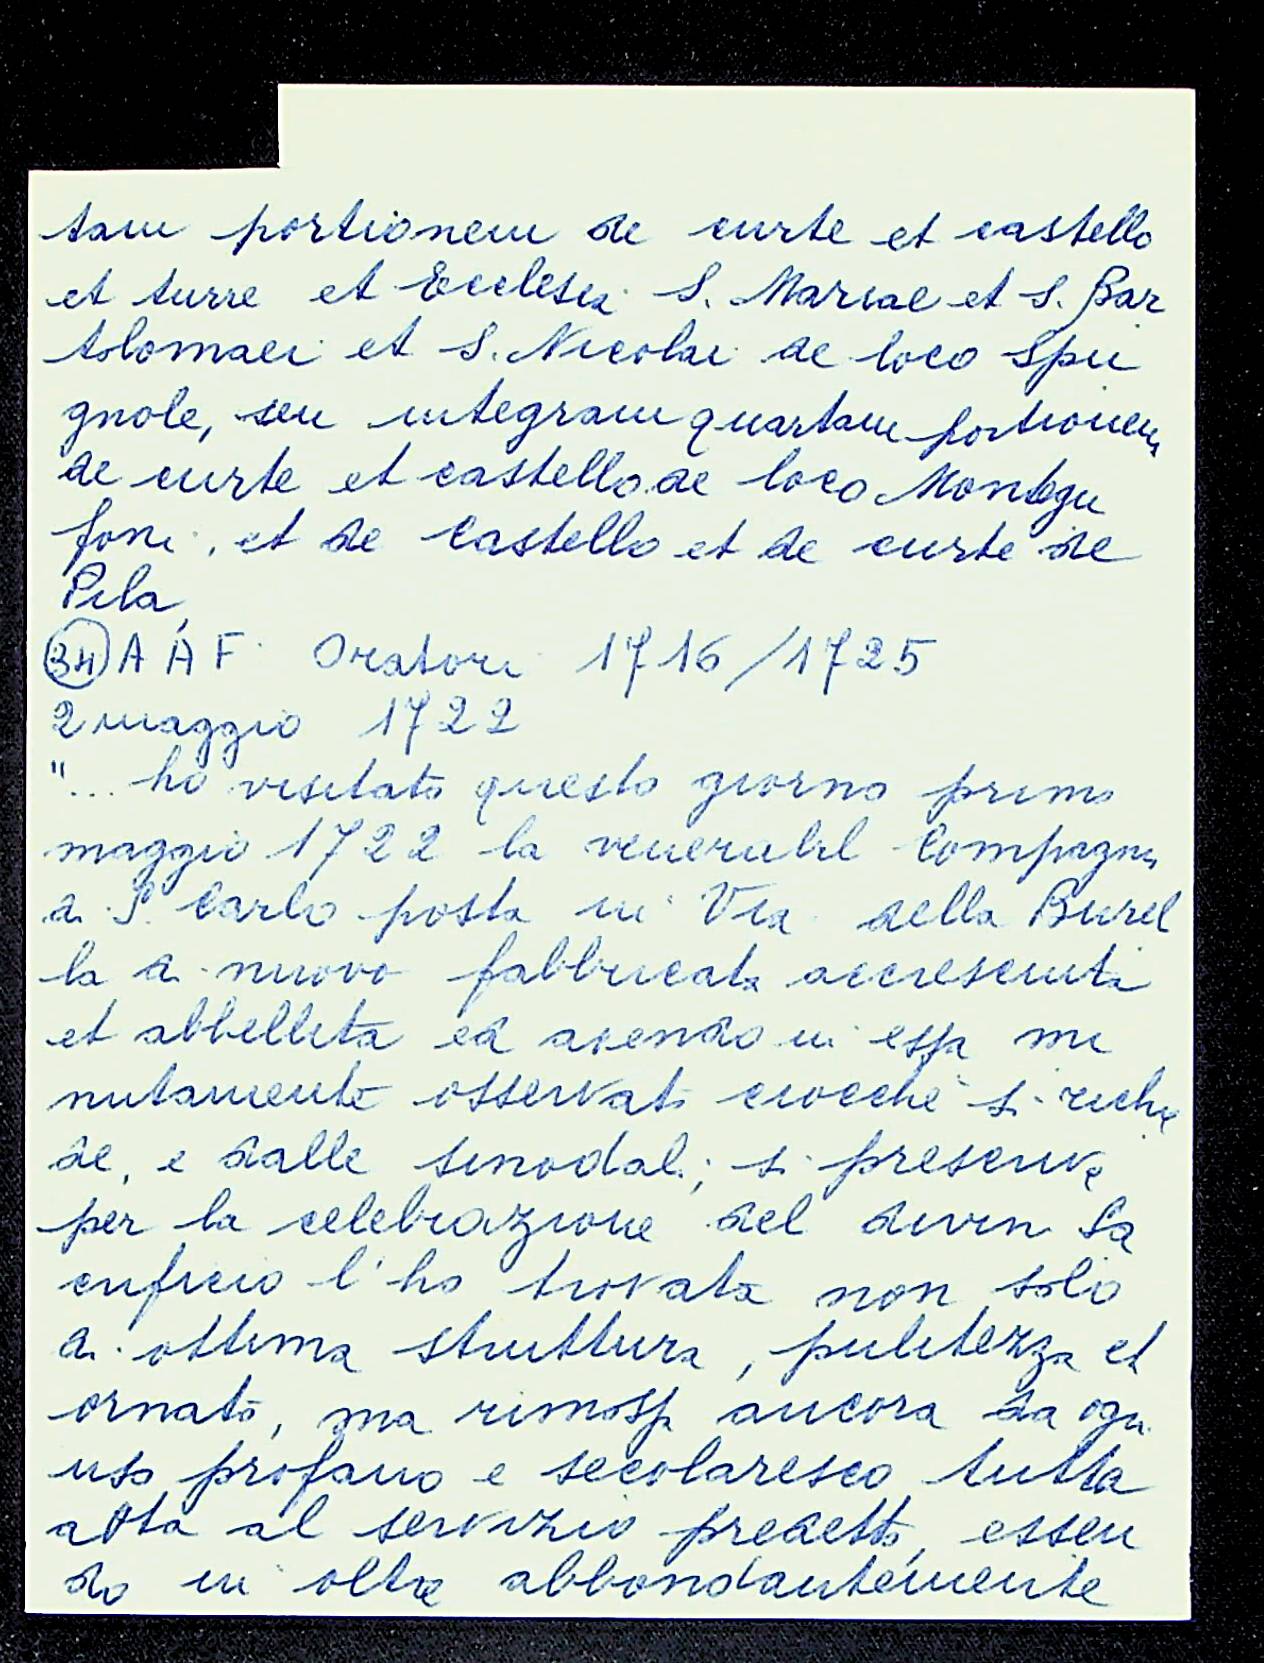 tam portionem de curte et castello
et turre et Ecclesia S. Mariae et S. Bar
tolomaei et S. Nicolai de loco Spu
gnole, seu integram quartam portionem
de curte et castello de loco Montegu
foni, et de Castello et de curte de
Pila,
(34) A A F Oratori 1716/1725
2 maggio 1722
"... ho visitato questo giorno primo
maggio 1722 la venerabil Compagnia
di S. Carlo posta in Via della Burel
la di nuovo fabbricata accresciuta
et abbellita ed avendo in essa mi
nutamente osservato ciocchè si richie
de, e dalle sinodali; si prescrive
per la celebrazione del divin Sa
crificio l'ho trovata non solo
di ottima struttura, pulitezza et
ornato, ma rimossa ancora da ogni
uso profano e secolaresco tutta
atta al servizio predetto, essen
do in oltre abbondantemente